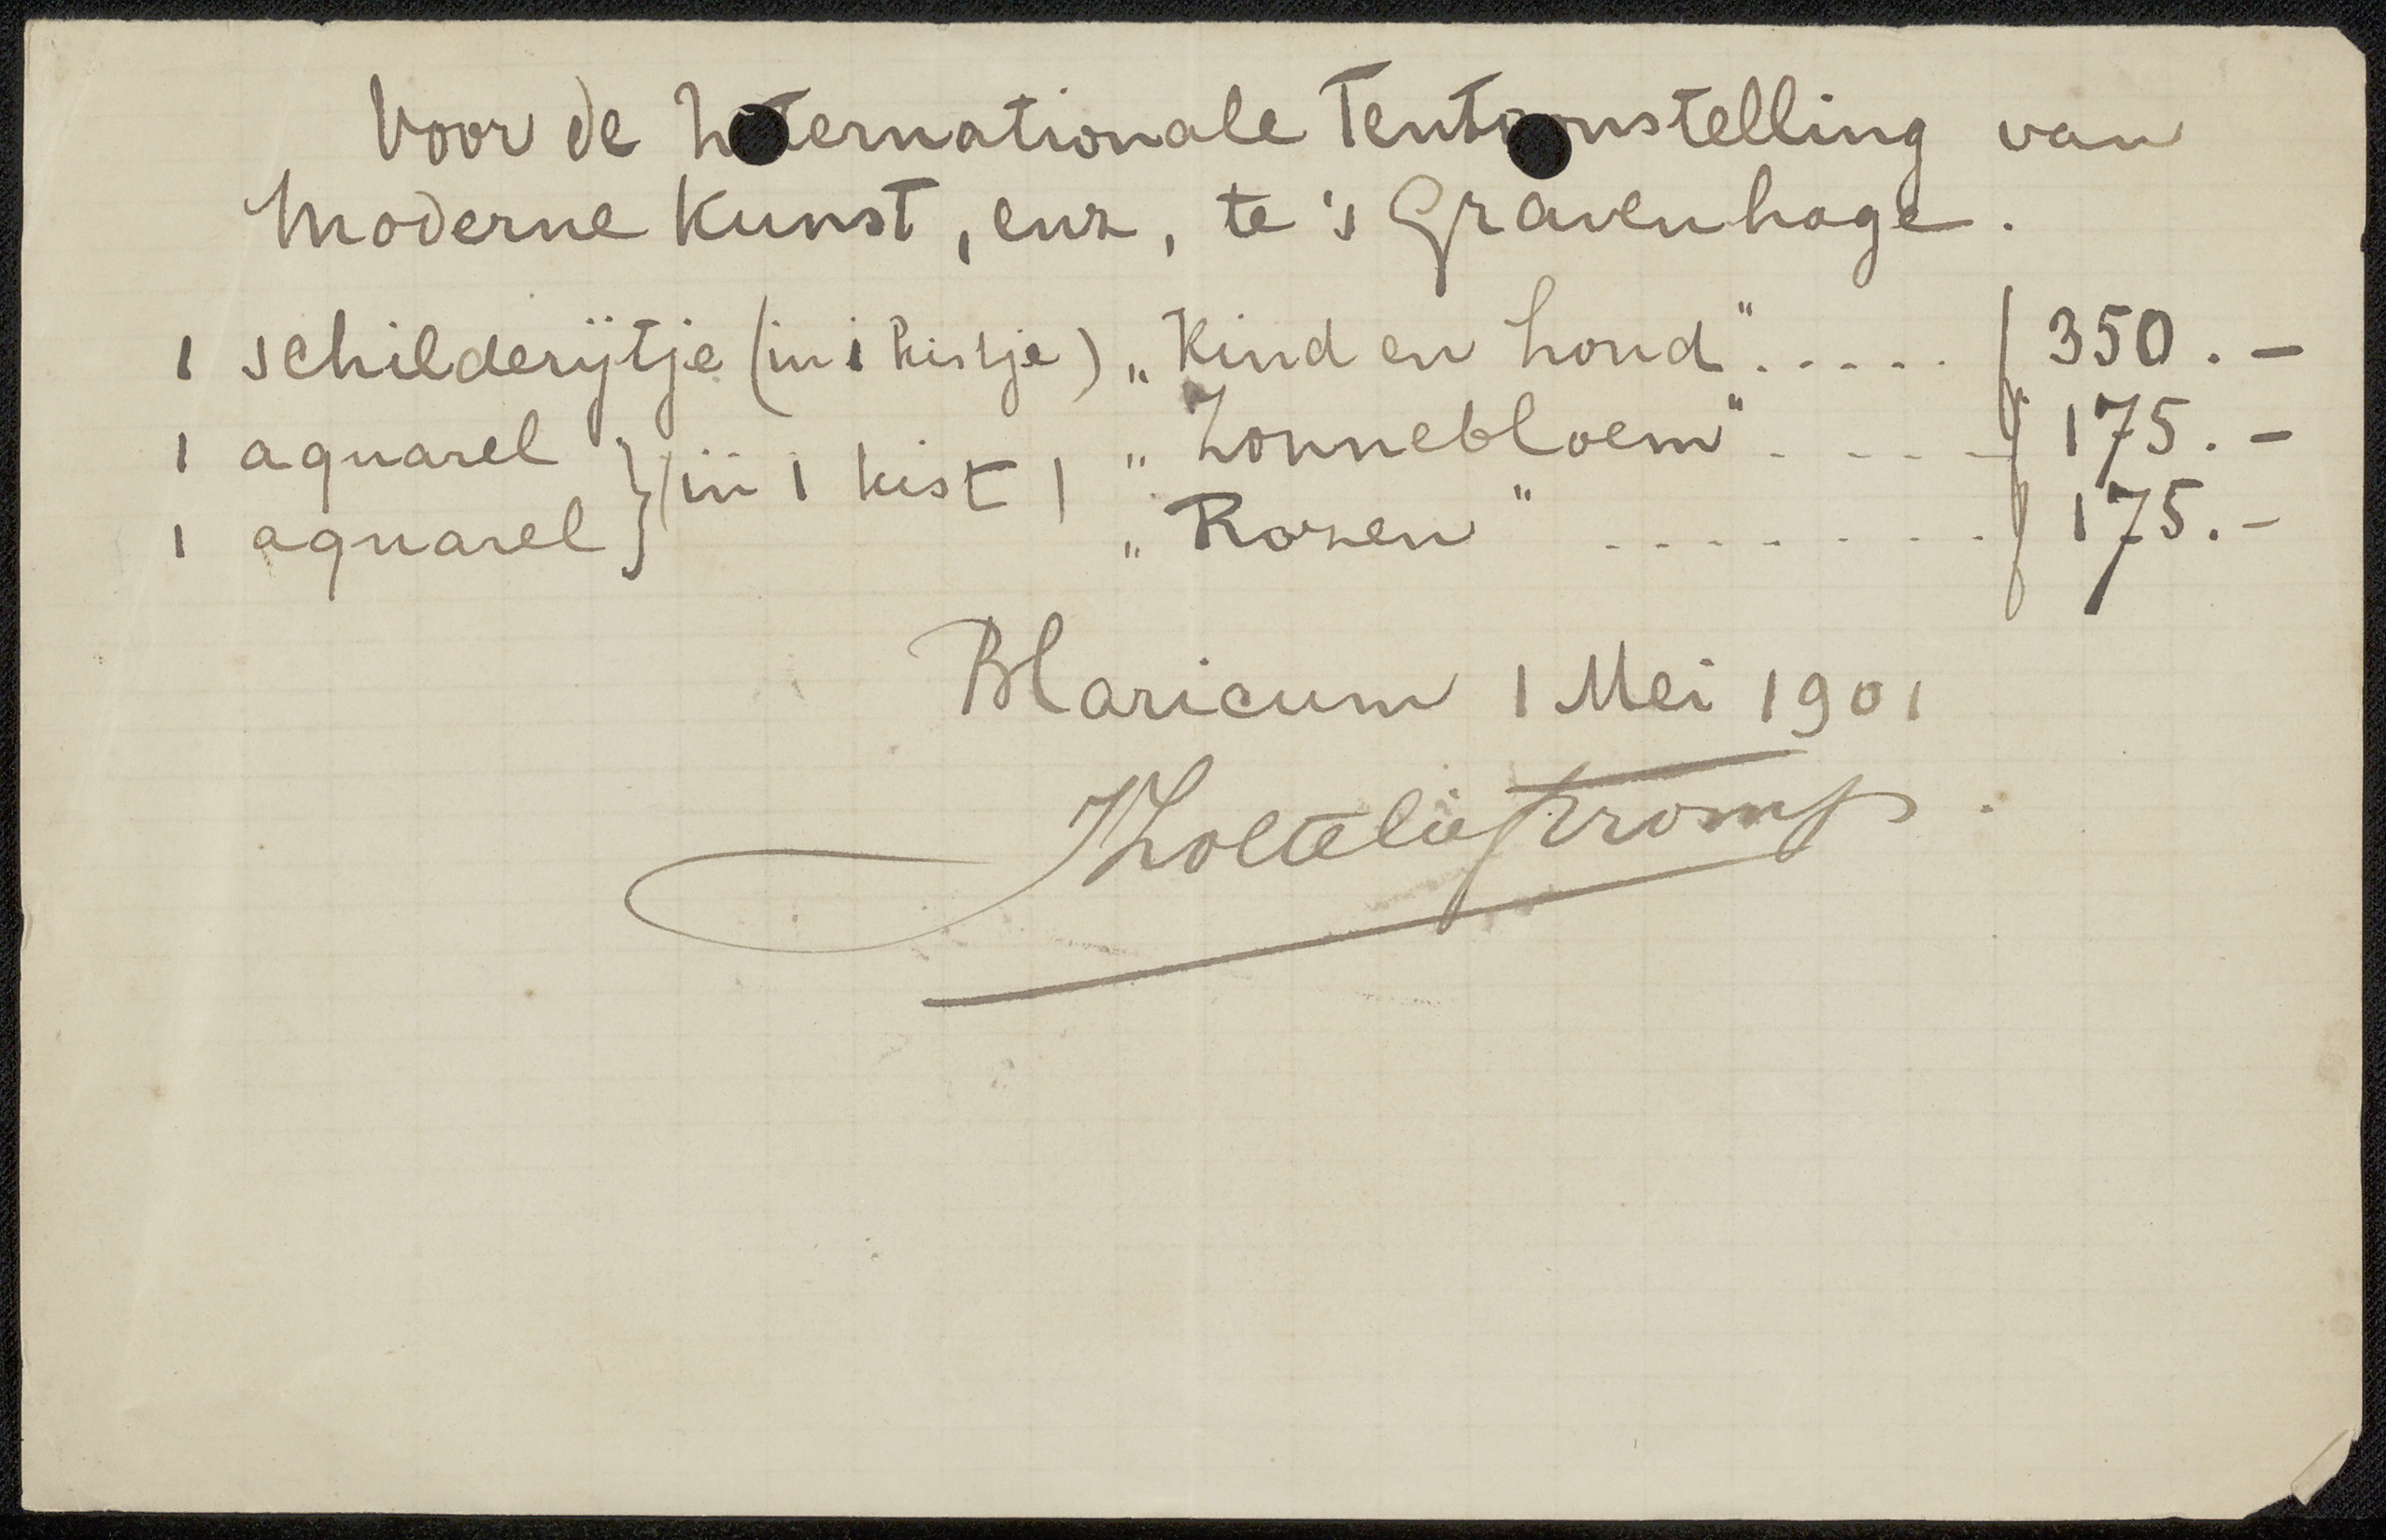 Voor de Internationale Tentoonstelling van
Moderne Kunst, enz, te 's Gravenhage.
1 schilderijtje (in 1 kistje) „Kind en hond" ..... f 350.-
1 aquarel „Zonnebloem" ..... f 175.-
(in 1 kist)
1 aquarel „Rozen" ........ f 175.-
Blaricum 1 Mei 1901
JZoetelieftromp.